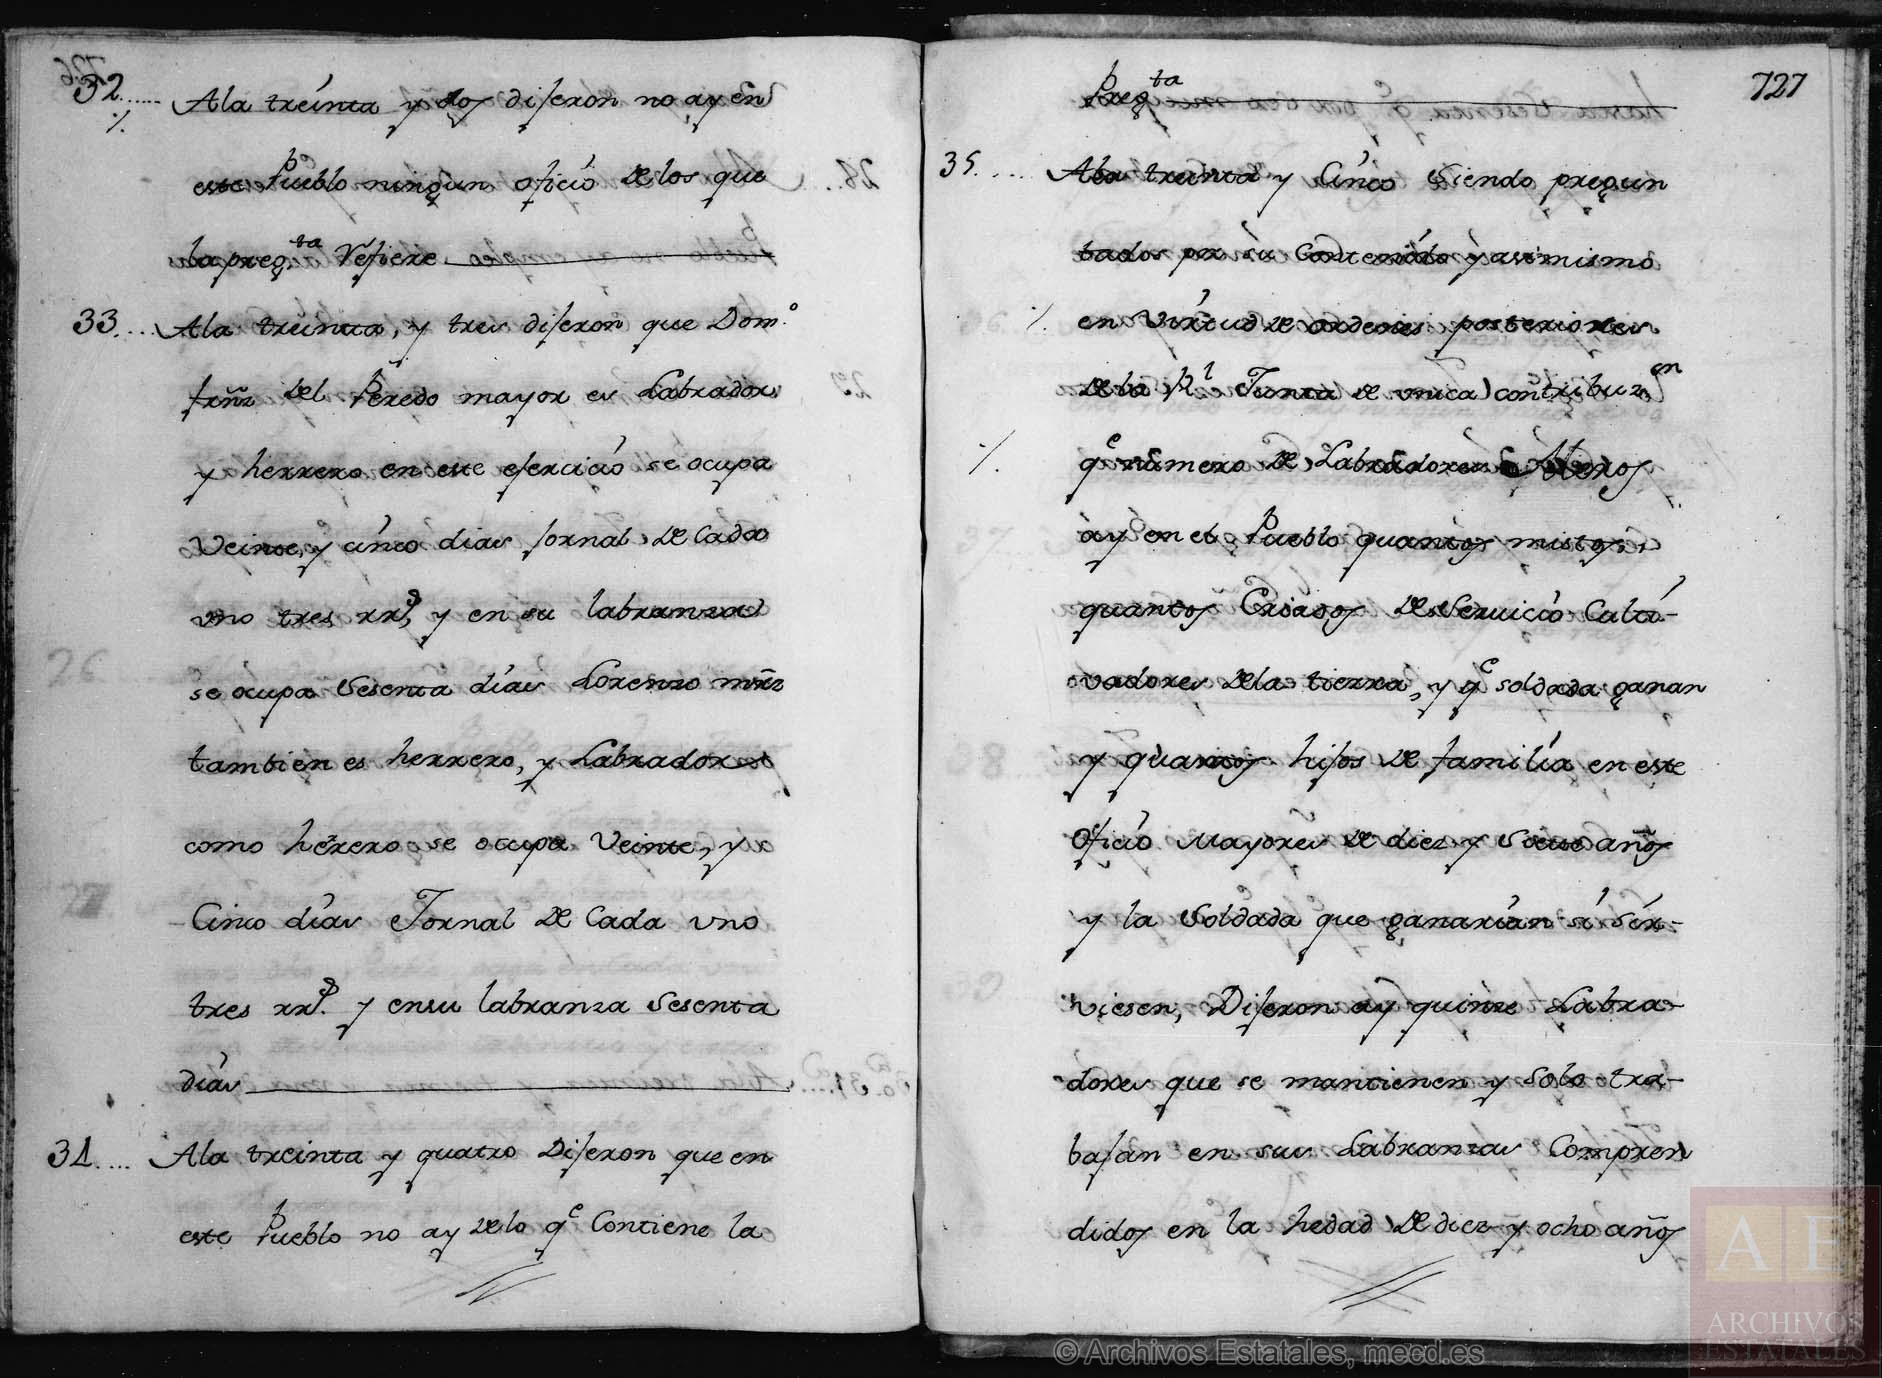 32...... Ala treinta y dos dijeron no ay en
este Pueblo ningun oficio de los que
la preg.ta Refiere
33.... Ala treinta, y tres dijeron que Dom.o
frñz del Peredo mayor es Labrador
y herrero en este ejercicio se ocupa
Veinte, y cinco dias jornal de Cada
vno tres rr.s, y en su labranza
se ocupa Sesenta dias Lorenzo mrñz
tambien es herrero, y Labrador
como herrero se ocupa Veinte, y
Cinco dias Jornal de Cada vno
tres rr.s y ensu labranza Sesenta
dias
34.... Ala treinta y quatro Dijeron que en
este Pueblo no ay de lo q.e Contiene la
727
Preg.ta
35..... Ala treinta y Cinco Siendo pregun
tados por su Contenido y asimismo
en Virtud de ordenes posteriores
de la R.l Junta de vnica contribuz.on
q.e numero de Labradores
ay en el Pueblo quantos mistos,
quantos Criados de Servicio Calti-
vadores de la tierra, y q.e soldada ganan
y quantos hijos de familia en este
Oficio Mayores de diez y Siete años
y la Soldada que ganarian si sir-
viesen, Dijeron ay quinze Labra-
dores que se mantienen y Solo tra-
bajan en sus Labranzas Compren
didos en la hedad de diez y ocho años
AE
ARCHIVOS
ESTATALES
© Archivos Estatales, mecd.es